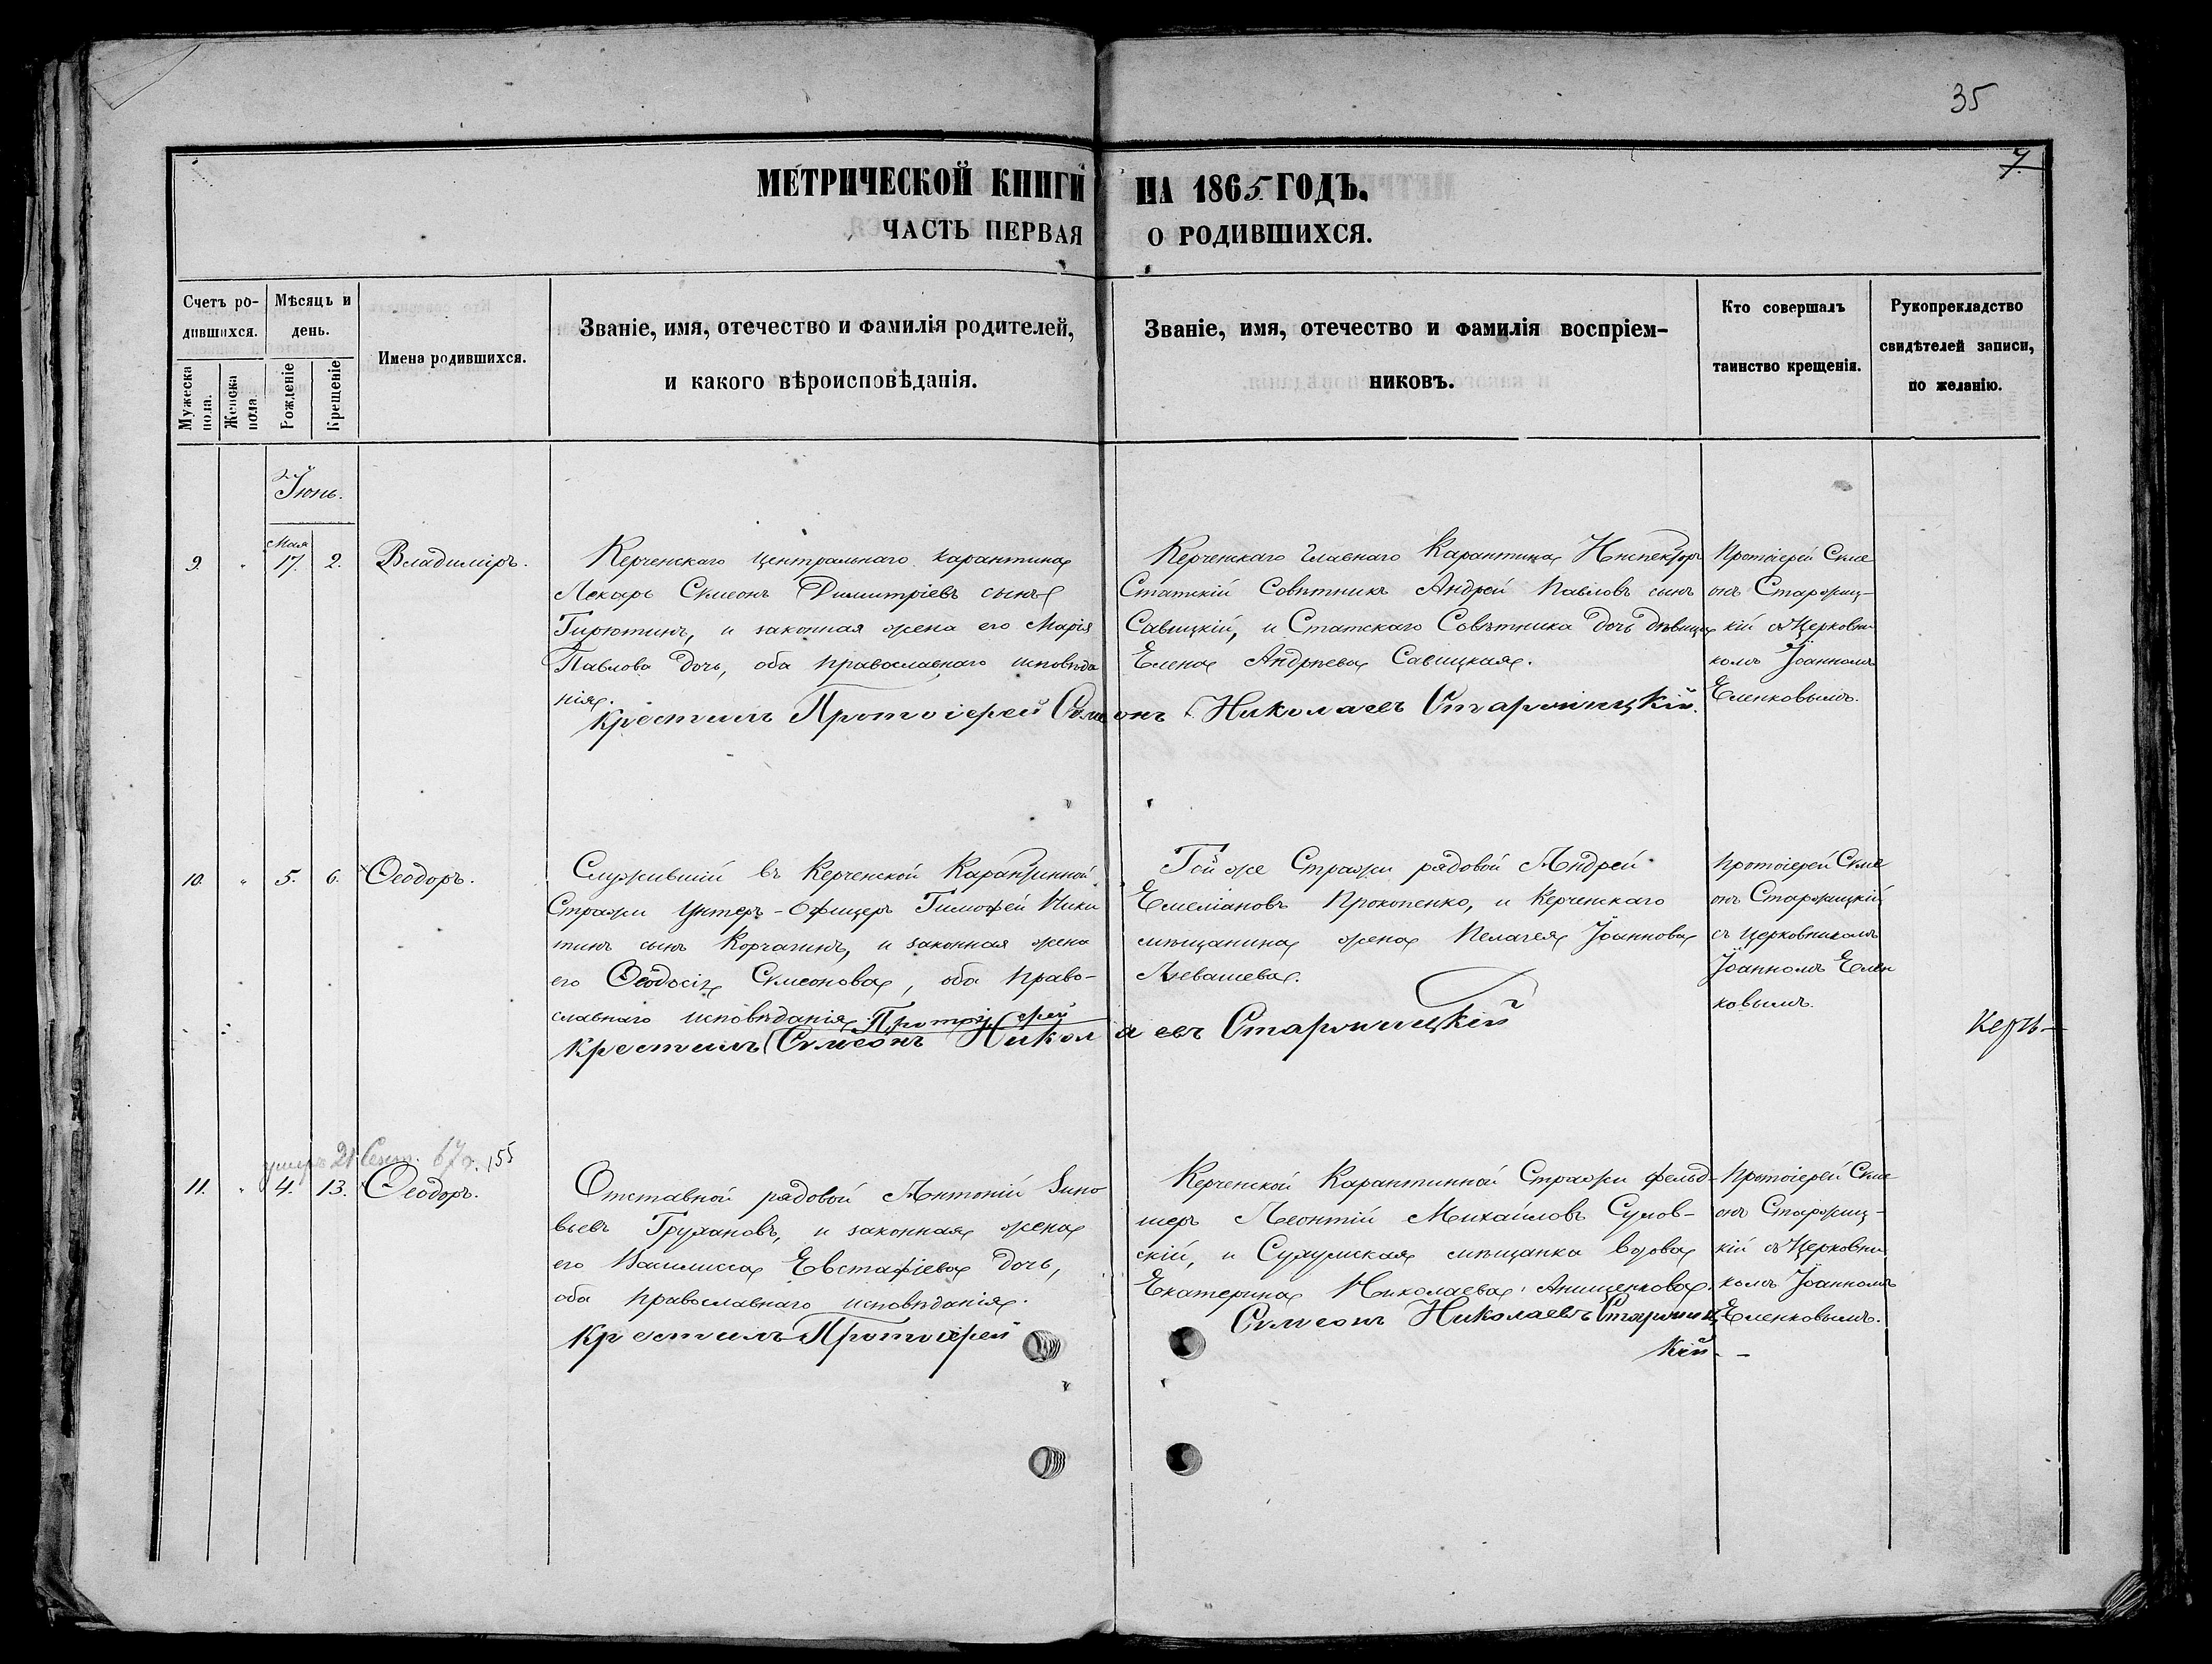 35
7.
МЕТРИЧЕСКОЙ КНИГИ НА 1865 ГОДЪ.
ЧАСТЬ ПЕРВАЯ О РОДИВШИХСЯ.
Счетъ ро-
дившихся.
Мужеска
пола.
Женска
пола.
Мѣсяцъ и
день.
Рожденіе
Крещеніе
Имена родившихся.
Званіе, имя, отечество и фамилія родителей,
и какого вѣроисповѣданія.
Званіе, имя, отечество и фамилія воспріем-
никовъ.
Кто совершалъ
таинство крещенія.
Рукоприкладство
свидѣтелей записи,
по желанію.
Іюнь.
Мая
9. " 17. 2. Владиміръ.
Керченскаго Центральнаго карантина
Лекарь Симеонъ Димитріевъ сынъ
Гирютинъ, и законная жена его Марія
Павлова дочь, оба православнаго исповѣда
нія.
Керченскаго Главнаго Карантина Инспекторъ
Статскій Совѣтникъ Андрей Павловъ сынъ
Савицкій, и Статскаго Совѣтника дочь дѣвица
Елена Андреева Савицкая.
Протоіерей Симе
онъ Старожиц-
кій съ Церковни
комъ Іоанномъ
Еленковымъ.
Крестилъ Протоіерей Симеонъ Николаевъ Старжицкій.
10. " 5. 6. Ѳеодоръ.
Служившій въ Керченской Карантинной
Стражи Унтеръ-Офицеръ Тимофей Ники
тинъ сынъ Корчагинъ, и законная жена
его Ѳеодосія Симеонова, оба право-
славнаго исповѣданія. Протоіерей
Крестилъ Симеонъ Николаевъ Старжицкій
Той же Стражи рядовой Андрей
Емеліановъ Прокопенко, и Керченскаго
мѣщанина жена Пелагея Іоаннова
Левашева.
Протоіерей Симе
онъ Старожицкій
съ Церковникомъ
Іоанномъ Елен
ковымъ.
Керчь-
умеръ 21 Сент. 67 г. 155
11. " 4. 13. Ѳеодоръ.
Отставной рядовой Антоній Зино
вьевъ Грухановъ, и законная жена
его Василисса Евстафіева дочь,
оба православнаго исповѣданія.
Крестилъ Протоіерей
Керченской Карантинной Стражи фельд-
шеръ Леонтій Михайловъ Сумов-
скій, и Сухумская мѣщанка вдова
Екатерина Николаева Анищенкова.
Симеонъ Николаевъ Старжиц
кій. -
Протоіерей Симе
онъ Старожиц-
кій съ Церковни
комъ Іоанномъ
Еленковымъ.